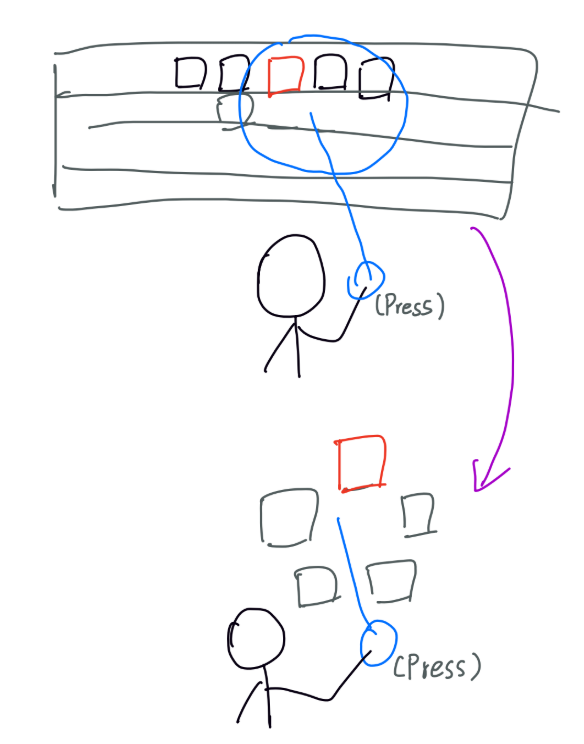 (Press)
(Press)